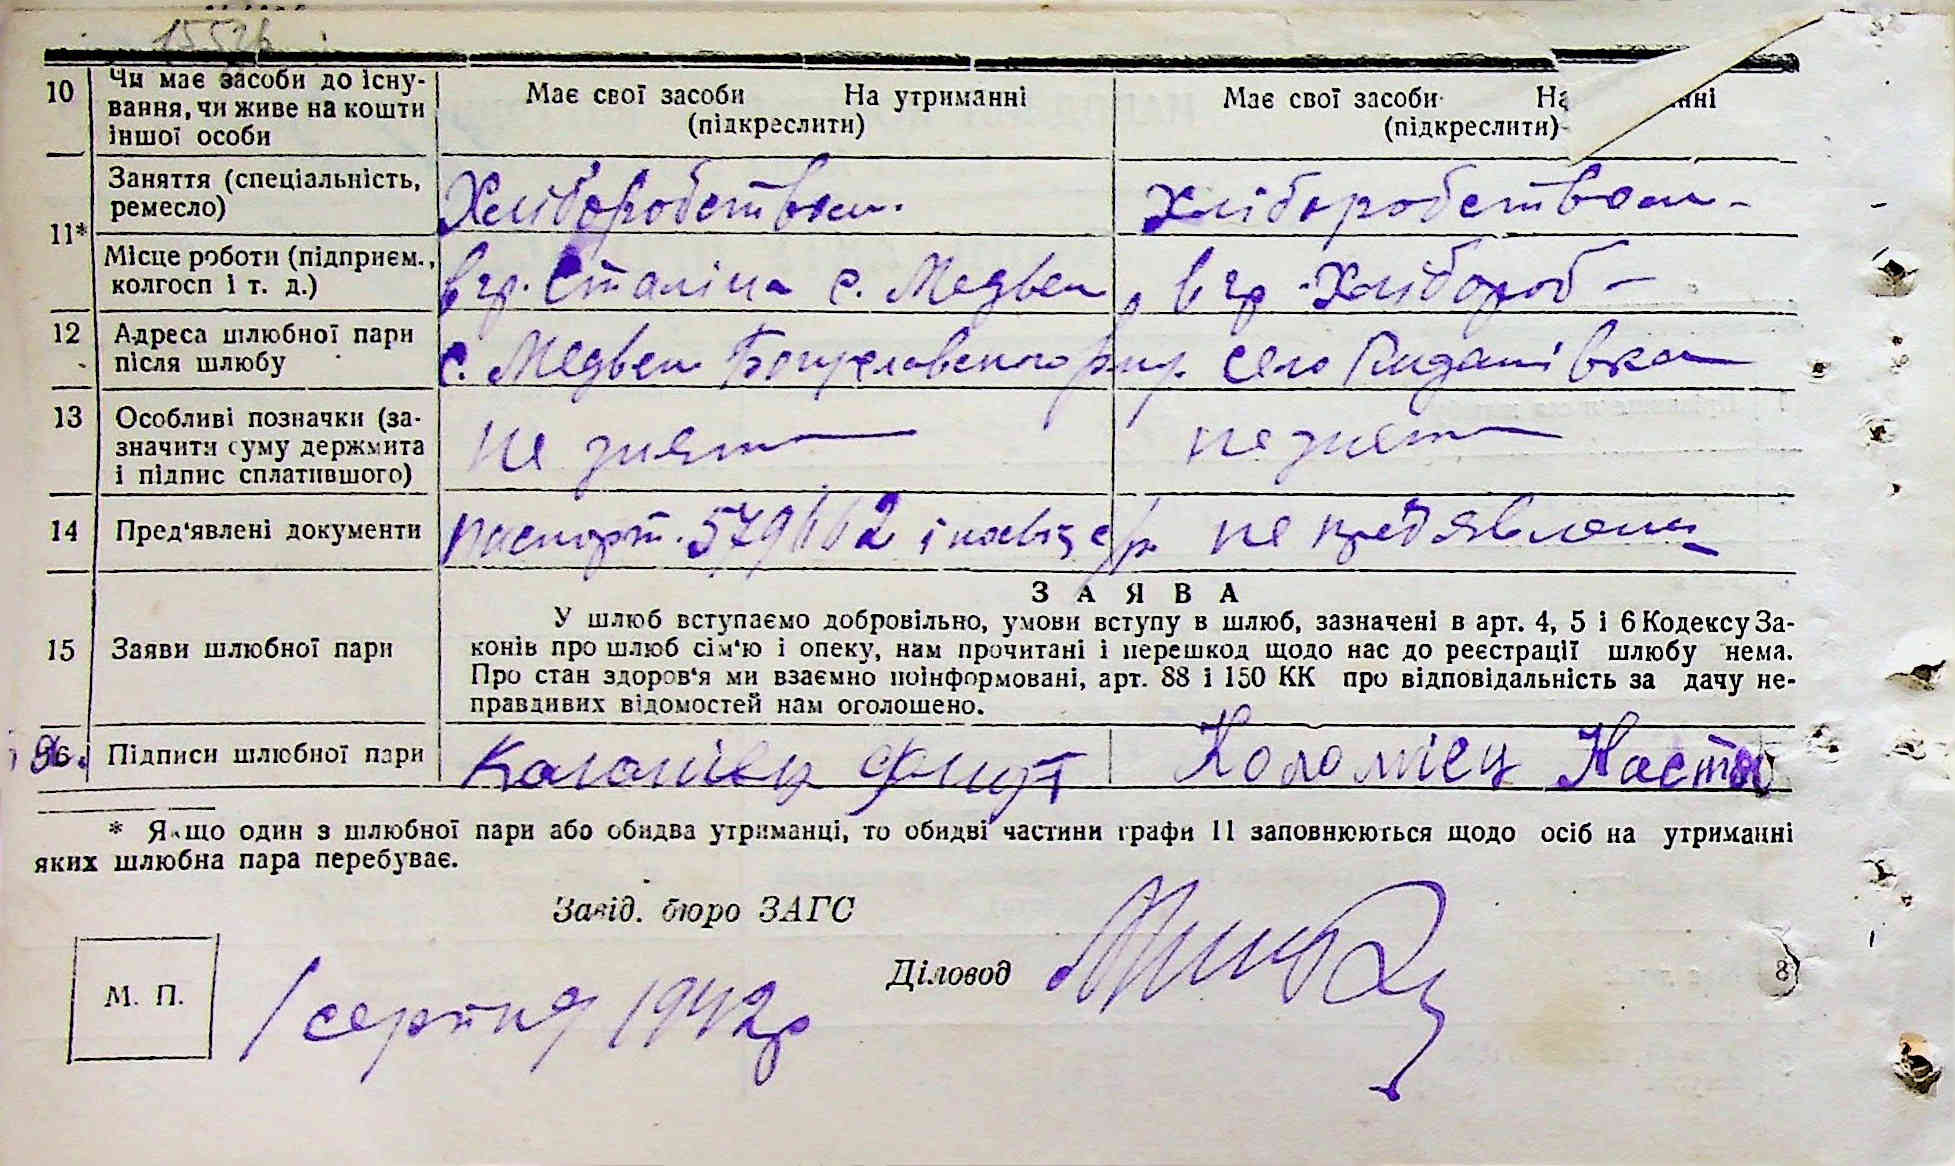 155
10 Чи має засоби до існу-
вання, чи живе на кошти
іншої особи
Має свої засоби На утриманні
(підкреслити)
Має свої засоби На нні
(підкреслити)
11*
Заняття (спеціальність,
ремесло)
Хліборобством. Хліборобством -
Місце роботи (підприєм.,
колгосп і т. д.)
в гр. Сталіна с. Медвен в гр. Хлібороб -
12 Адреса шлюбної пари
після шлюбу
с. Медвен Богуславського р село
13 Особливі позначки (за-
значити суму держмита
і підпис сплатившого)
не знято не знято
14 Пред‘явлені документи
паспорт. і посвід с/р не пред'явлено
15 Заяви шлюбної пари
ЗАЯВА
У шлюб вступаємо добровільно, умови вступу в шлюб, зазначені в арт. 4, 5 і 6 Кодексу За-
конів про шлюб сім‘ю і опеку, нам прочитані і перешкод щодо нас до реєстрації шлюбу нема.
Про стан здоров‘я ми взаємно поінформовані, арт. 88 і 150 КК про відповідальність за дачу не-
правдивих відомостей нам оголошено.
16 Підписи шлюбної пари
Коломієц Коломієц Настя
* Якщо один з шлюбної пари або обидва утриманці, то обидві частини графи 11 заповнюються щодо осіб на утриманні
яких шлюбна пара перебуває.
Завід. бюро ЗАГС
М. П.
Діловод
8
1 серпня 1942р